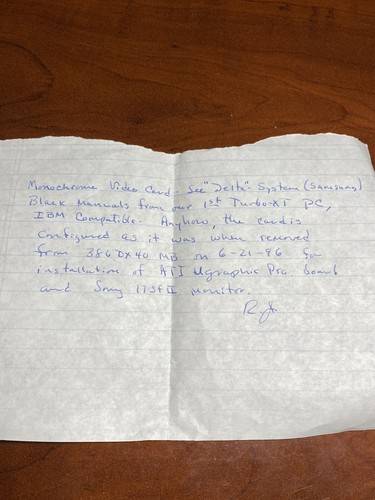 Monochrome Video Card - See "Delta" System (Samsung)
Black Manuals from our 1st Turbo-XT PC,
IBM Compatible. Anyhow, the card is
configured as it was when removed
from 386DX40 MB on 6-21-96 for
installation of ATI Ugraphic Pro board
and Sony 17sfII monitor.